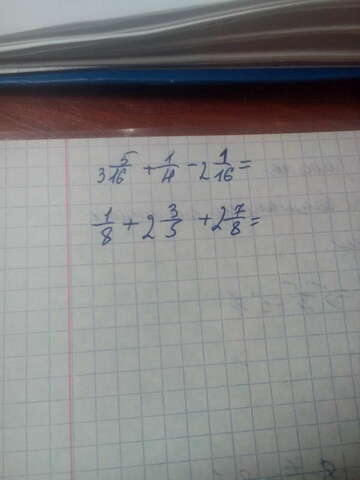 3 5/16 + 1/4 - 2 1/16 =
1/8 + 2 3/5 + 2 7/8 =